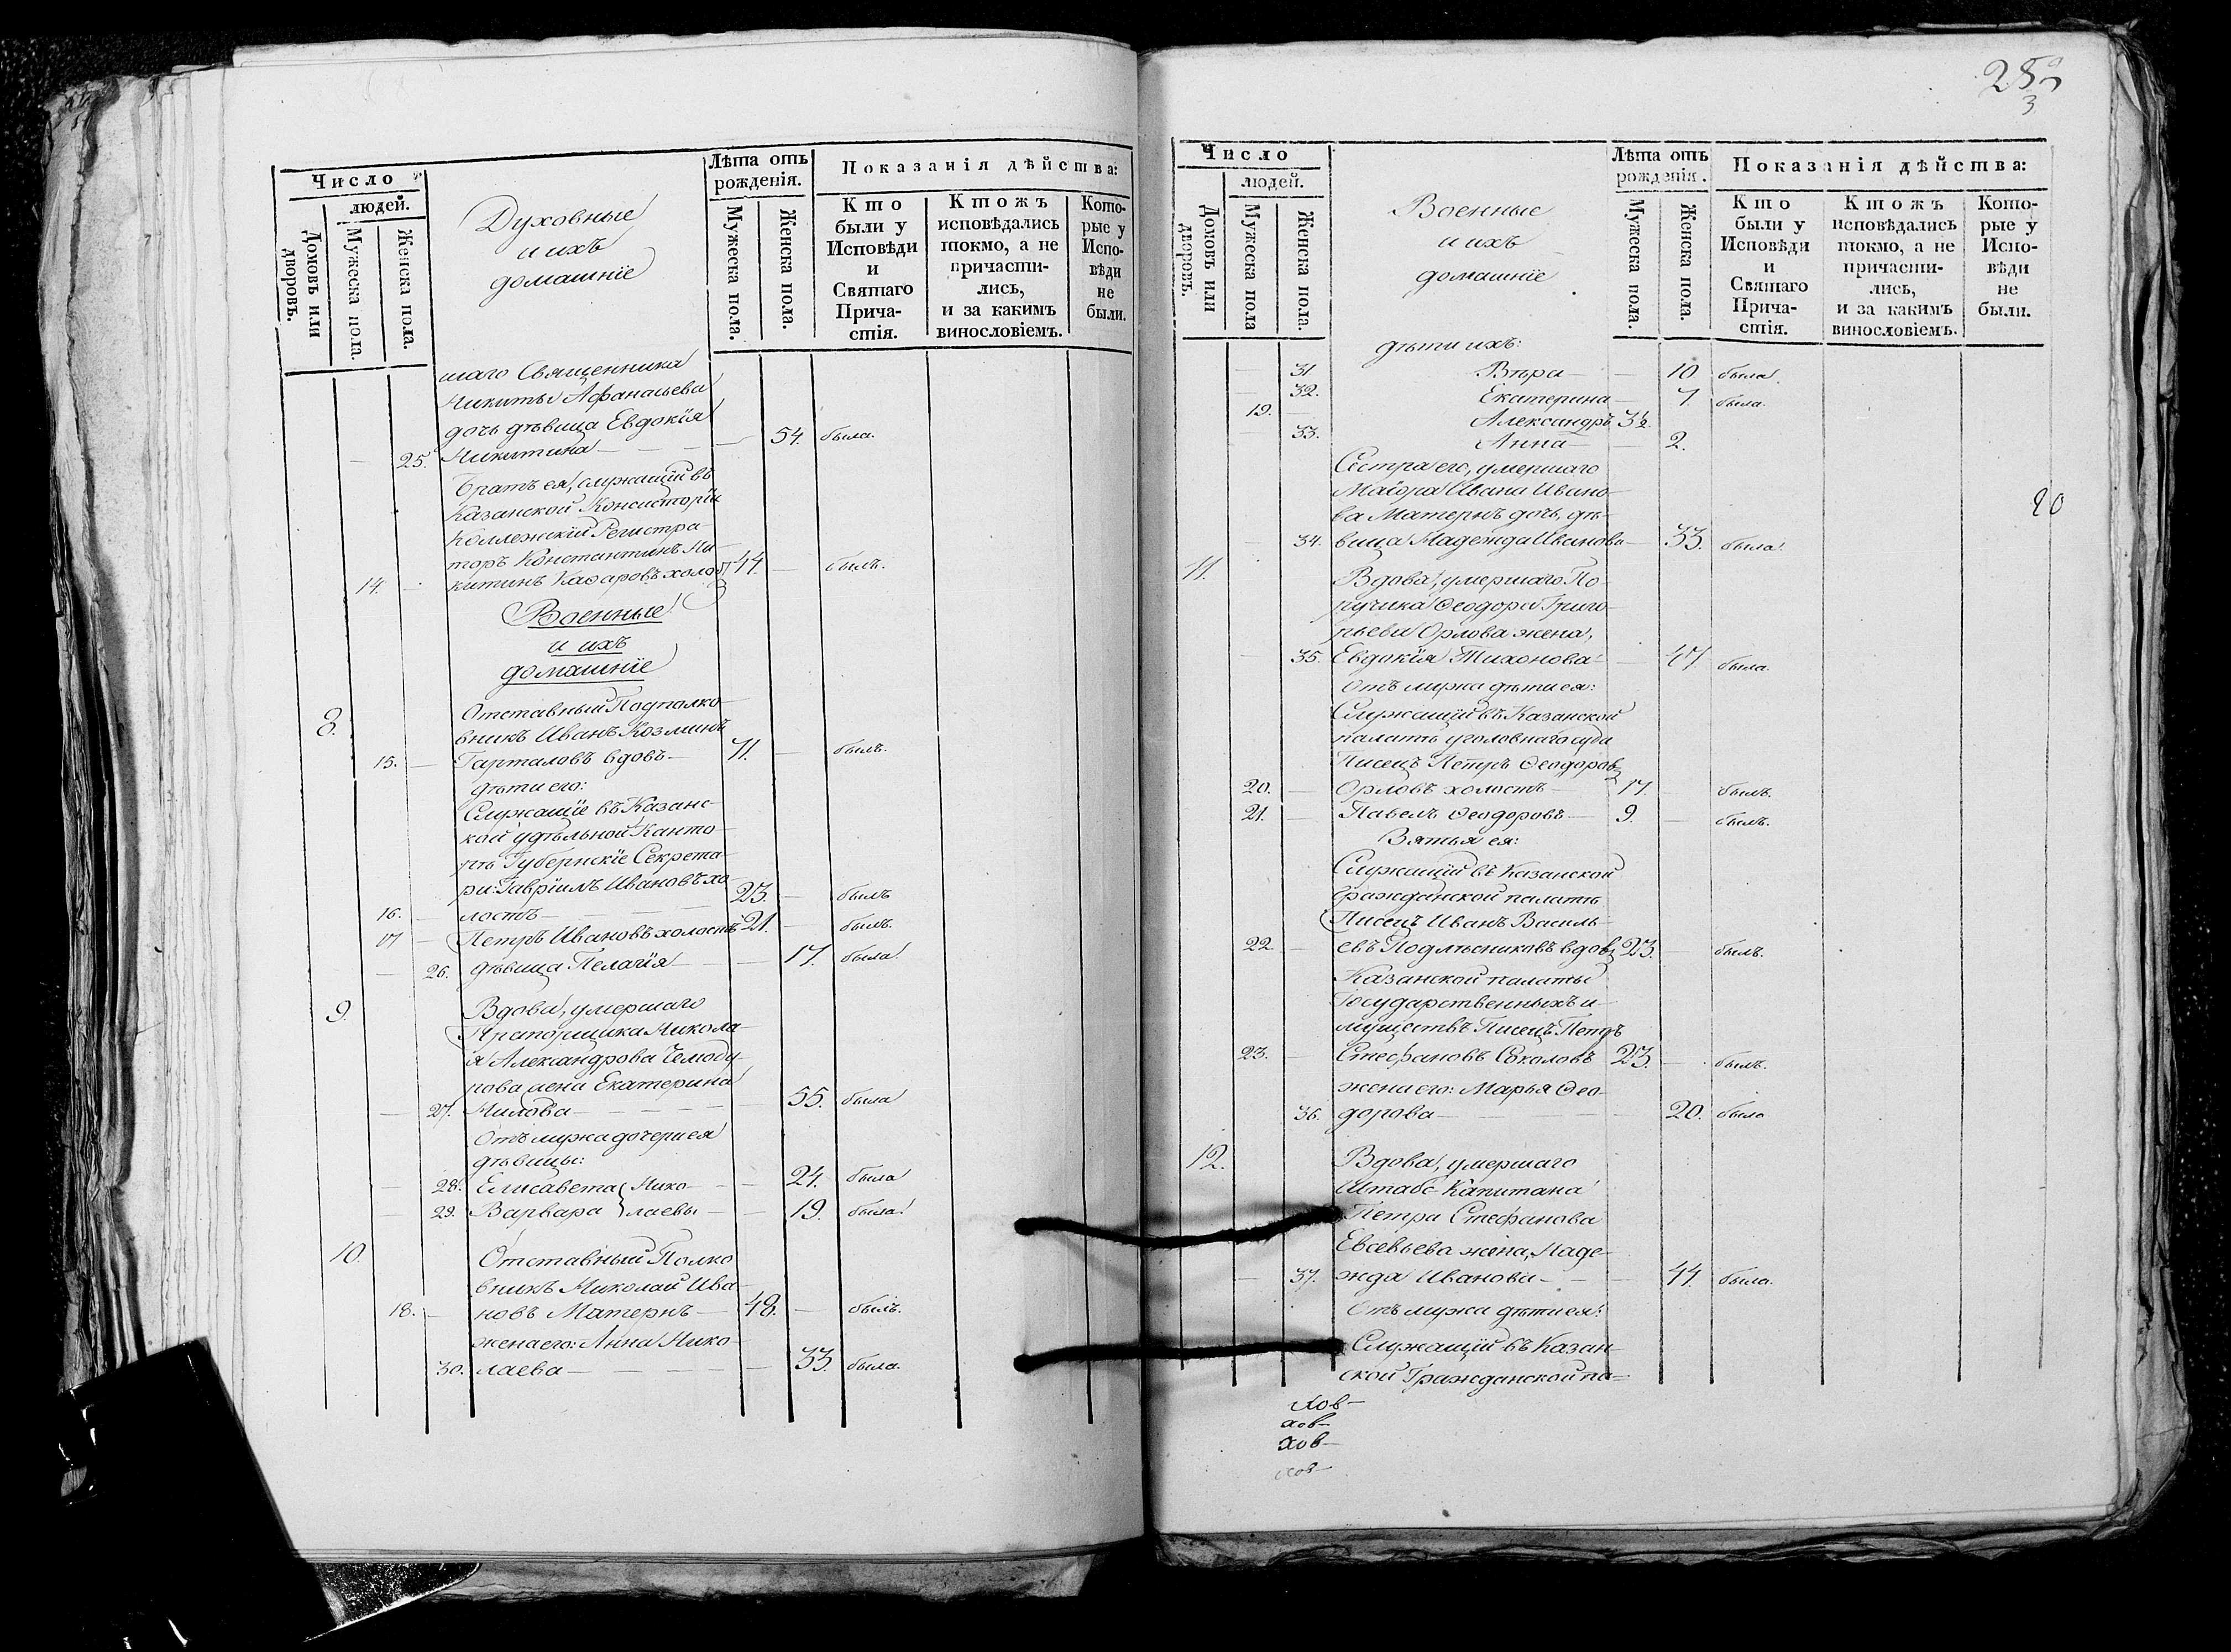 Число
людей.
Домовъ или дворовъ.
Мужеска пола.
Женска пола.
Духовные
и ихъ
домашніе
Лѣта отъ рожденія.
Мужеска пола.
Женска пола.
Показанія дѣйства:
Кто были у Исповѣди и Святаго Причастія.
Ктожъ исповѣдались токмо, а не причастились, и за какимъ винословіемъ.
Которые у Исповѣди не были.
шаго Священника
Никиты Афанасьева
дочь дѣвица Евдокія
— 25. Никитина — — 54. была.
Братъ ея, служащій въ
Казанской Консисторіи
Коллежскій Регистра-
торъ Константинъ Ни-
14. — китинъ холост 44. — былъ.
Военные
и ихъ
домашніе
8. Отставный Подполко-
вникъ Иванъ Козминъ
15. — Гарталовъ вдовъ — 71. — былъ.
дѣти его:
Служащіе въ Казанс-
кой удѣльной Канто-
рѣ Губернскіе Секрета-
ри: Гавріилъ Ивановъ хо-
16. — лостъ — 23. — былъ
17 — Петръ Ивановъ холостъ 21. — былъ.
— 26. дѣвица Пелагія — — 17. была
9. Вдова, умершаго
Прапорщика Никола-
я Александрова Чемоду-
рова жена Екатерина
— 27. Нилова — — 55. была
Отъ мужа дочери ея
дѣвицы:
— 28. Елисавета } Нико- — 24. была
— 29. Варвара } лаевы — — 19. была
10. Отставный Полко
вникъ Николай Ива-
18. — новъ Матернъ — 48. — былъ.
жена его: Анна Нико-
30. лаева — — 33. была.
28
3
Число
людей.
Домовъ или дворовъ.
Мужеска пола
Женска пола.
Военные
и ихъ
домашніе
Лѣта отъ рожденія.
Мужеска пола.
Женска пола.
Показанія дѣйства:
Кто были у Исповѣди и Святаго Причастія.
Ктожъ исповѣдались токмо, а не причастились, и за какимъ винословіемъ.
Которые у Исповѣди не были.
дѣти ихъ:
— 31 Вѣра — — 10 была.
— 32. Екатерина — 7. была.
19. — Александръ 3½
— 33. Анна — 2.
Сестра его, умершаго
Маіора Ивана Ивано-
ва Матернъ дочь, дѣ-
— 34. вица Надежда Иванова — 33. была.
20
11. Вдова, умершаго По-
ручика Ѳеодора Григо-
рьева Орлова жена,
— 35. Евдокія Тихонова — 47 была.
Отъ мужа дѣти ея:
Служащій въ Казанской
палатѣ уголовнаго суда
Писецъ Петръ Ѳеодоровъ
20. — Орловъ холостъ — 17. — былъ.
21. — Павелъ Ѳеодоровъ — 9. — былъ.
Зятья ея:
Служащій въ Казанской
гражданской палатѣ
Писецъ Иванъ Василь-
22 — евъ Подлѣсниковъ вдовъ 23. — былъ.
Казанской палаты
Государственныхъ и-
муществъ Писецъ Петръ
23. — Стефановъ Соколовъ 23. — былъ.
жена его: Марья Ѳео-
36. дорова — — 20. была
12. Вдова, умершаго
Штабс-Капитана
Петра Стефанова
Евсевьева жена, Наде-
— 37. жда Иванова — — 44. была.
Отъ мужа дѣти ея:
Служащій въ Казан-
ской Гражданской па-
хов-
хов-
хов-
хов-